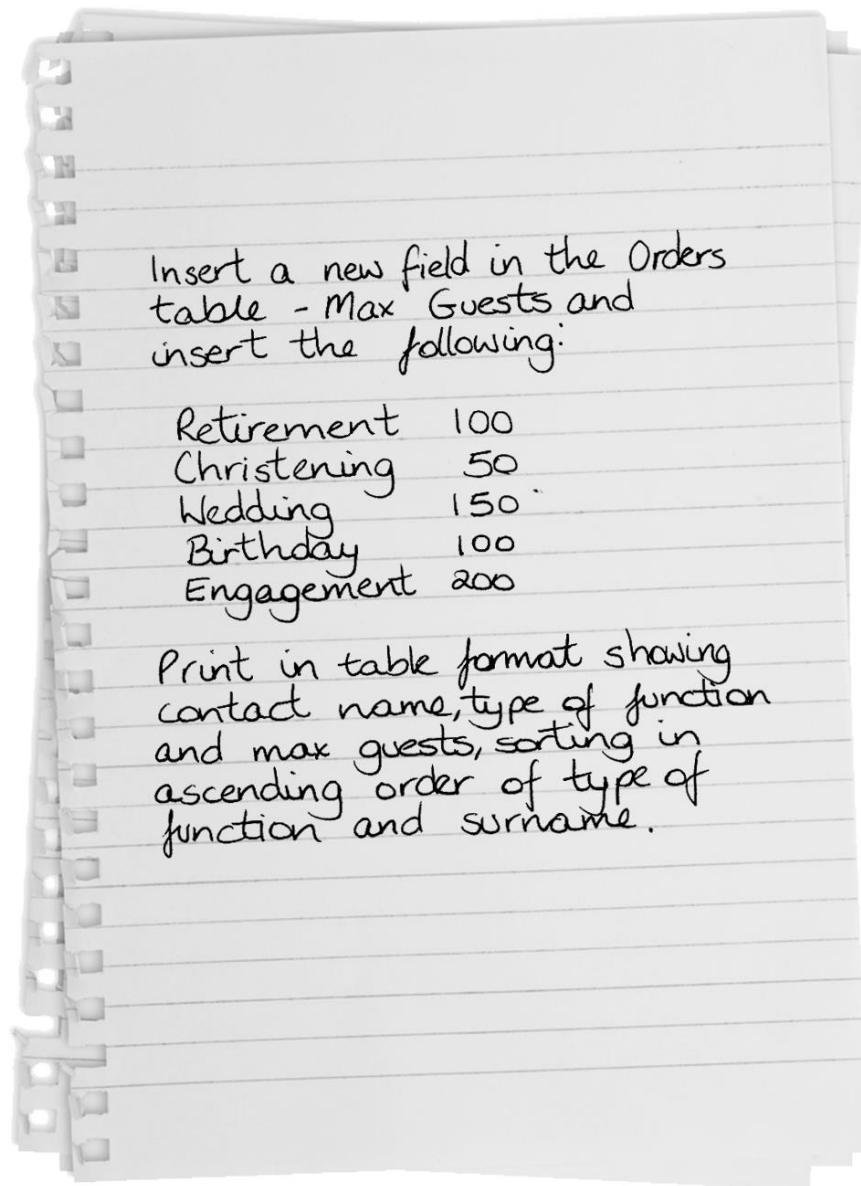 Insert a new field in the Orders
table - Max Guests and
insert the following:
Retirement 100
Christening 50
Wedding 150
Birthday 100
Engagement 200
Print in table format showing
contact name, type of function
and max guests, sorting in
ascending order of type of
function and surname.